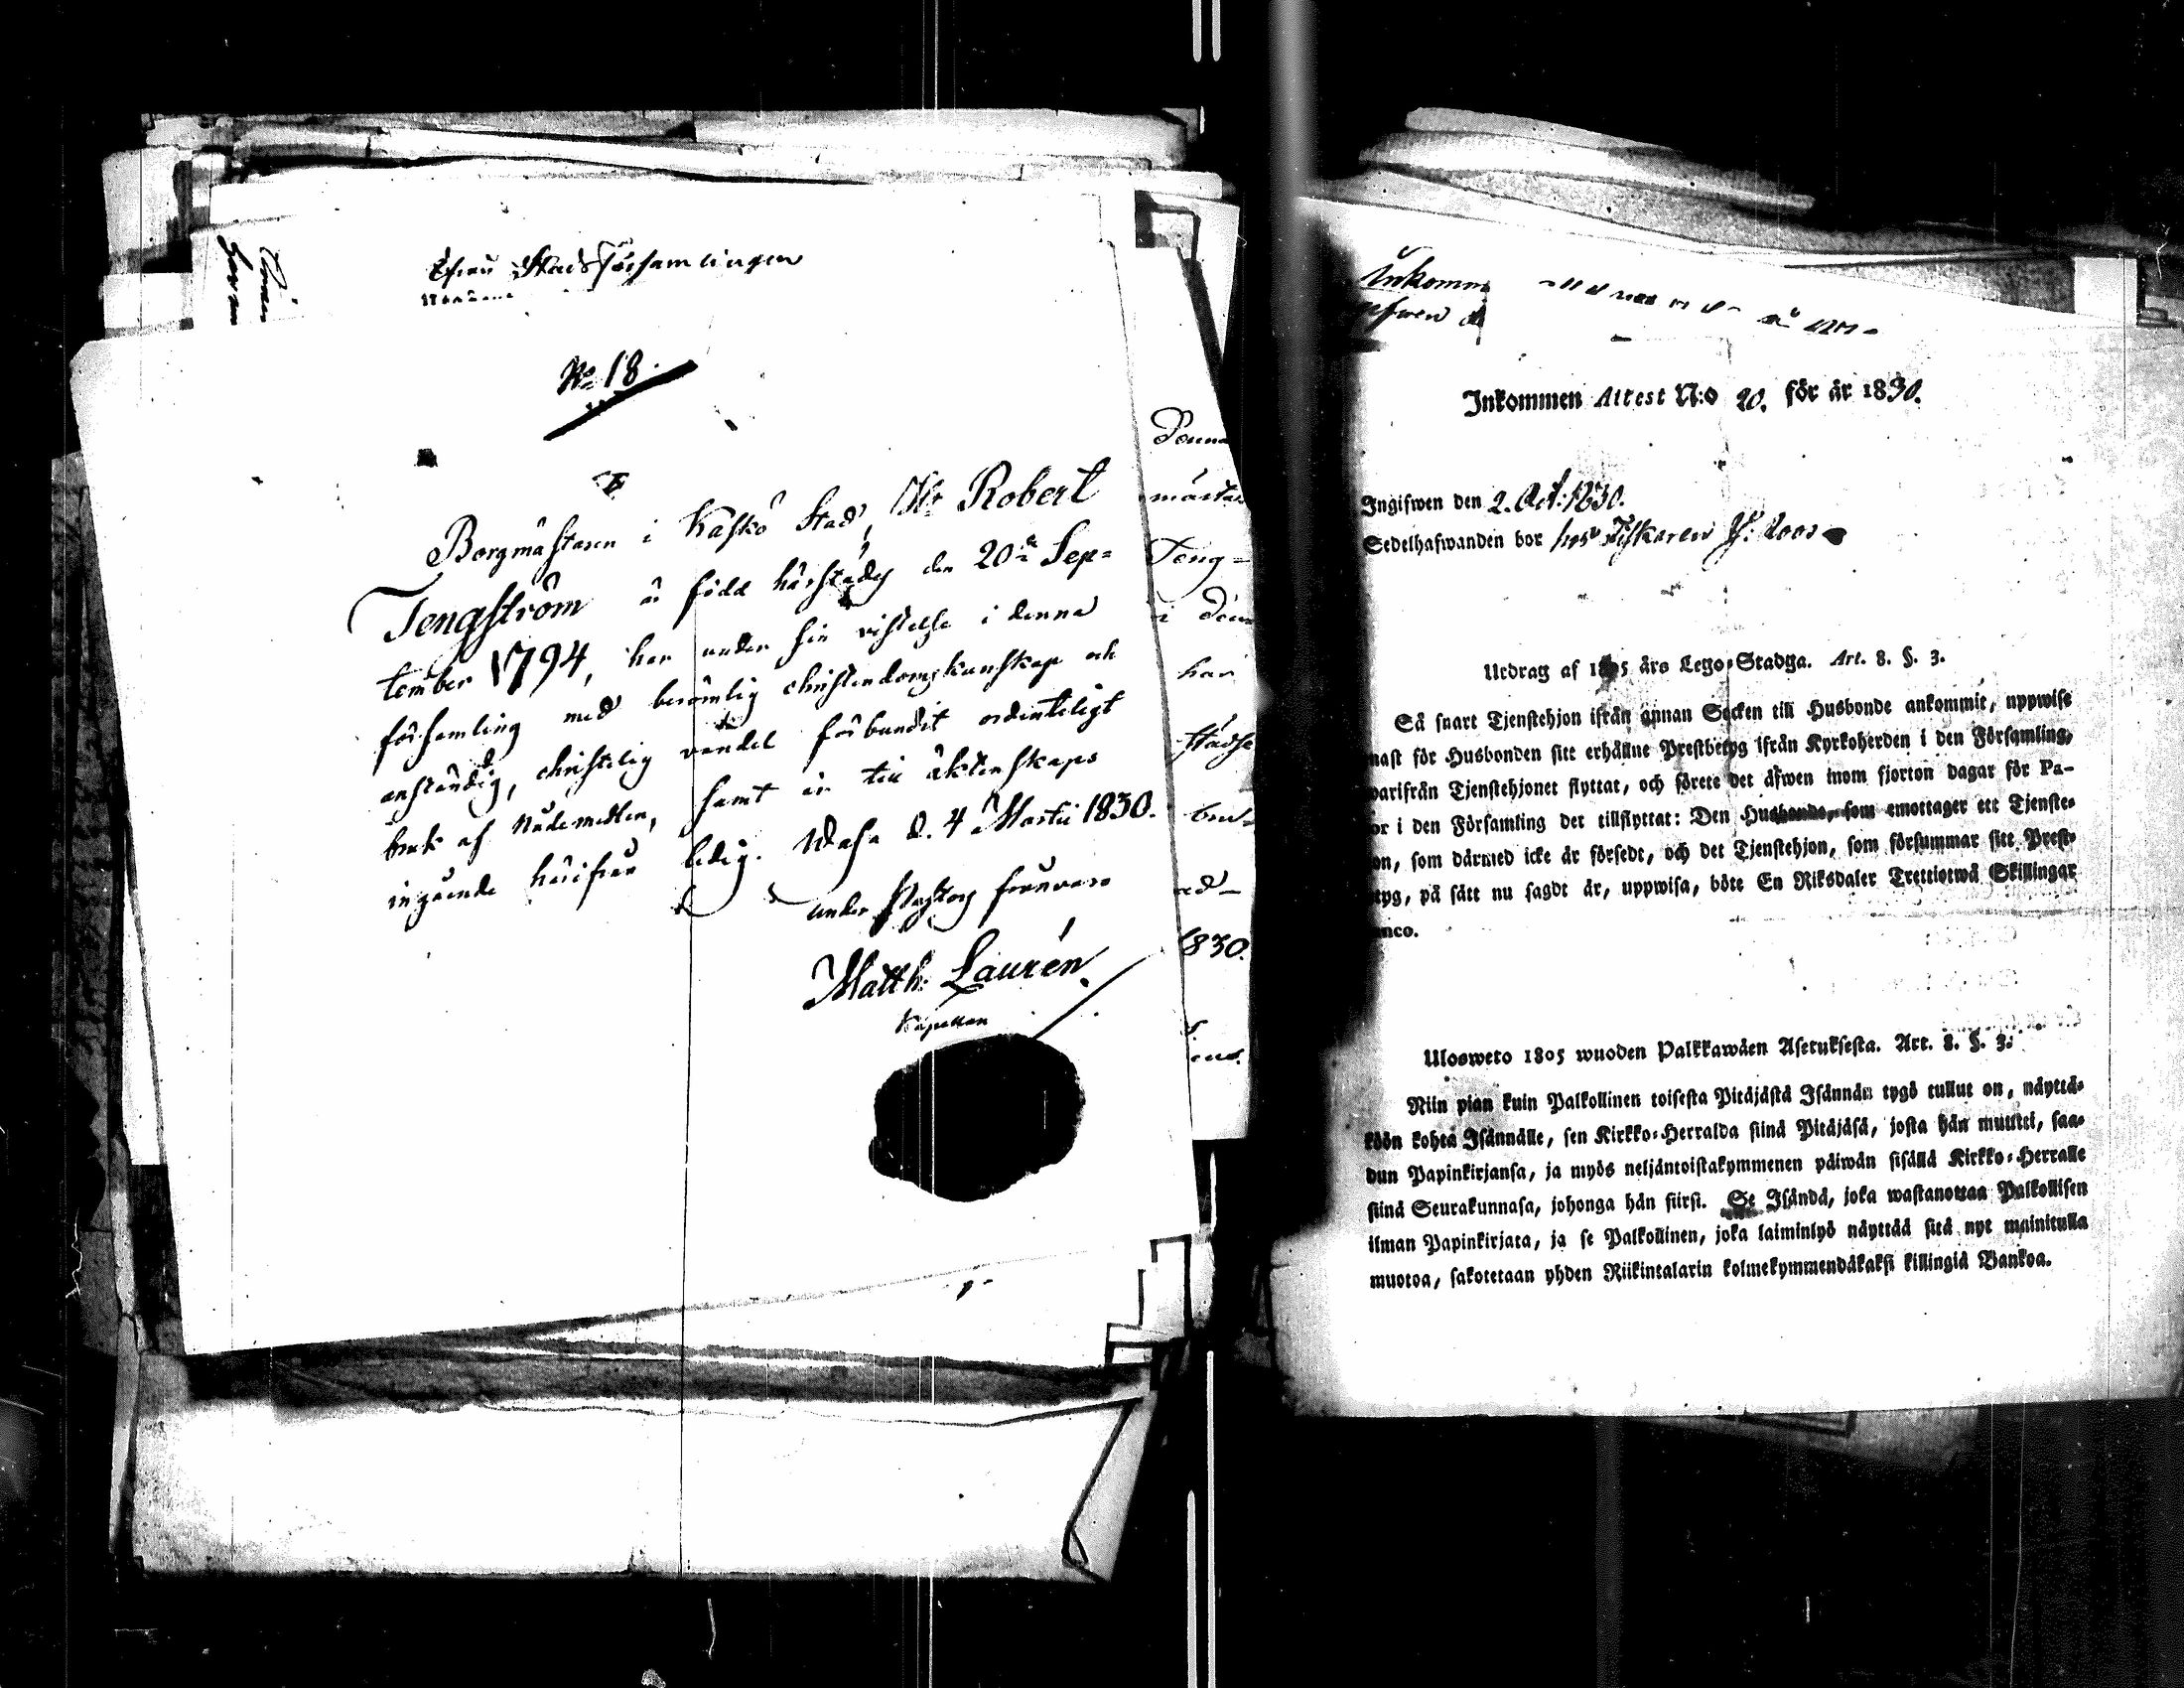 Stadsförsamlingen
No 18.
Borgmästaren i Kaskö Stad, Hr Robert
Tengström är född härstädes den 20de Sep-
tember 1794, har under sin vistelse i denna
församling med berömlig christendomskunskap och
anständig, christelig vandel förbundit ordenteligt
bruk af Nådemedlen, samt är till äktenskaps
ingående härifrån ledig. Wasa d. 4 Martii 1830.
under
Matth: Laurén.
Kapellan
Denna
Teng-
i
har
1830.
Inkomm
Inkommen Attest N:o 20. för år 1830.
Ingifwen den 2. Oct: 1830.
Sedelhafwanden bor hos Fiskaren
Utdrag af 1805 års Lego-Stadga. Art. 8. §. 3.
Så snart Tjenstehjon ifrån annan Socken till Husbonde ankommit, uppwise
nast för Husbonden sitt erhållne Prestbetyg ifrån Kyrkoherden i den Församling,
warifrån Tjenstehjonet flyttat, och förete det äfwen inom fjorton dagar för Pa-
or i den Församling det tillflyttat: Den Husbonde, som emottager ett Tjenste-
on, som därmed icke är försedt, och det Tjenstehjon, som försummar sitt Prest-
tyg, på sätt nu sagdt är, uppwisa, böte En Riksdaler Trettiotwå Skillingar
nco.
Ulosweto 1805 wuoden Palkkawäen Asetuksesta. Art. 8. §. 3.
Niin pian kuin Palkollinen toisesta Pitäjästä Isännän tygö tullut on, näyttä-
köön kohta Isännälle, sen Kirkko-Herralda siinä Pitäjäsä, josta hän muutti, saa-
dun Papinkirjansa, ja myös neljäntoistakymmenen päiwän sisällä Kirkko-Herralle
siinä Seurakunnasa, johonga hän siirsi. Se Isändä, joka wastanottaa Palkollisen
ilman Papinkirjata, ja se Palkollinen, joka laiminlyö näyttää sitä nyt mainitulla
muotoa, sakotetaan yhden Riikintalarin kolmekymmendäkaksi killingiä Bankoa.